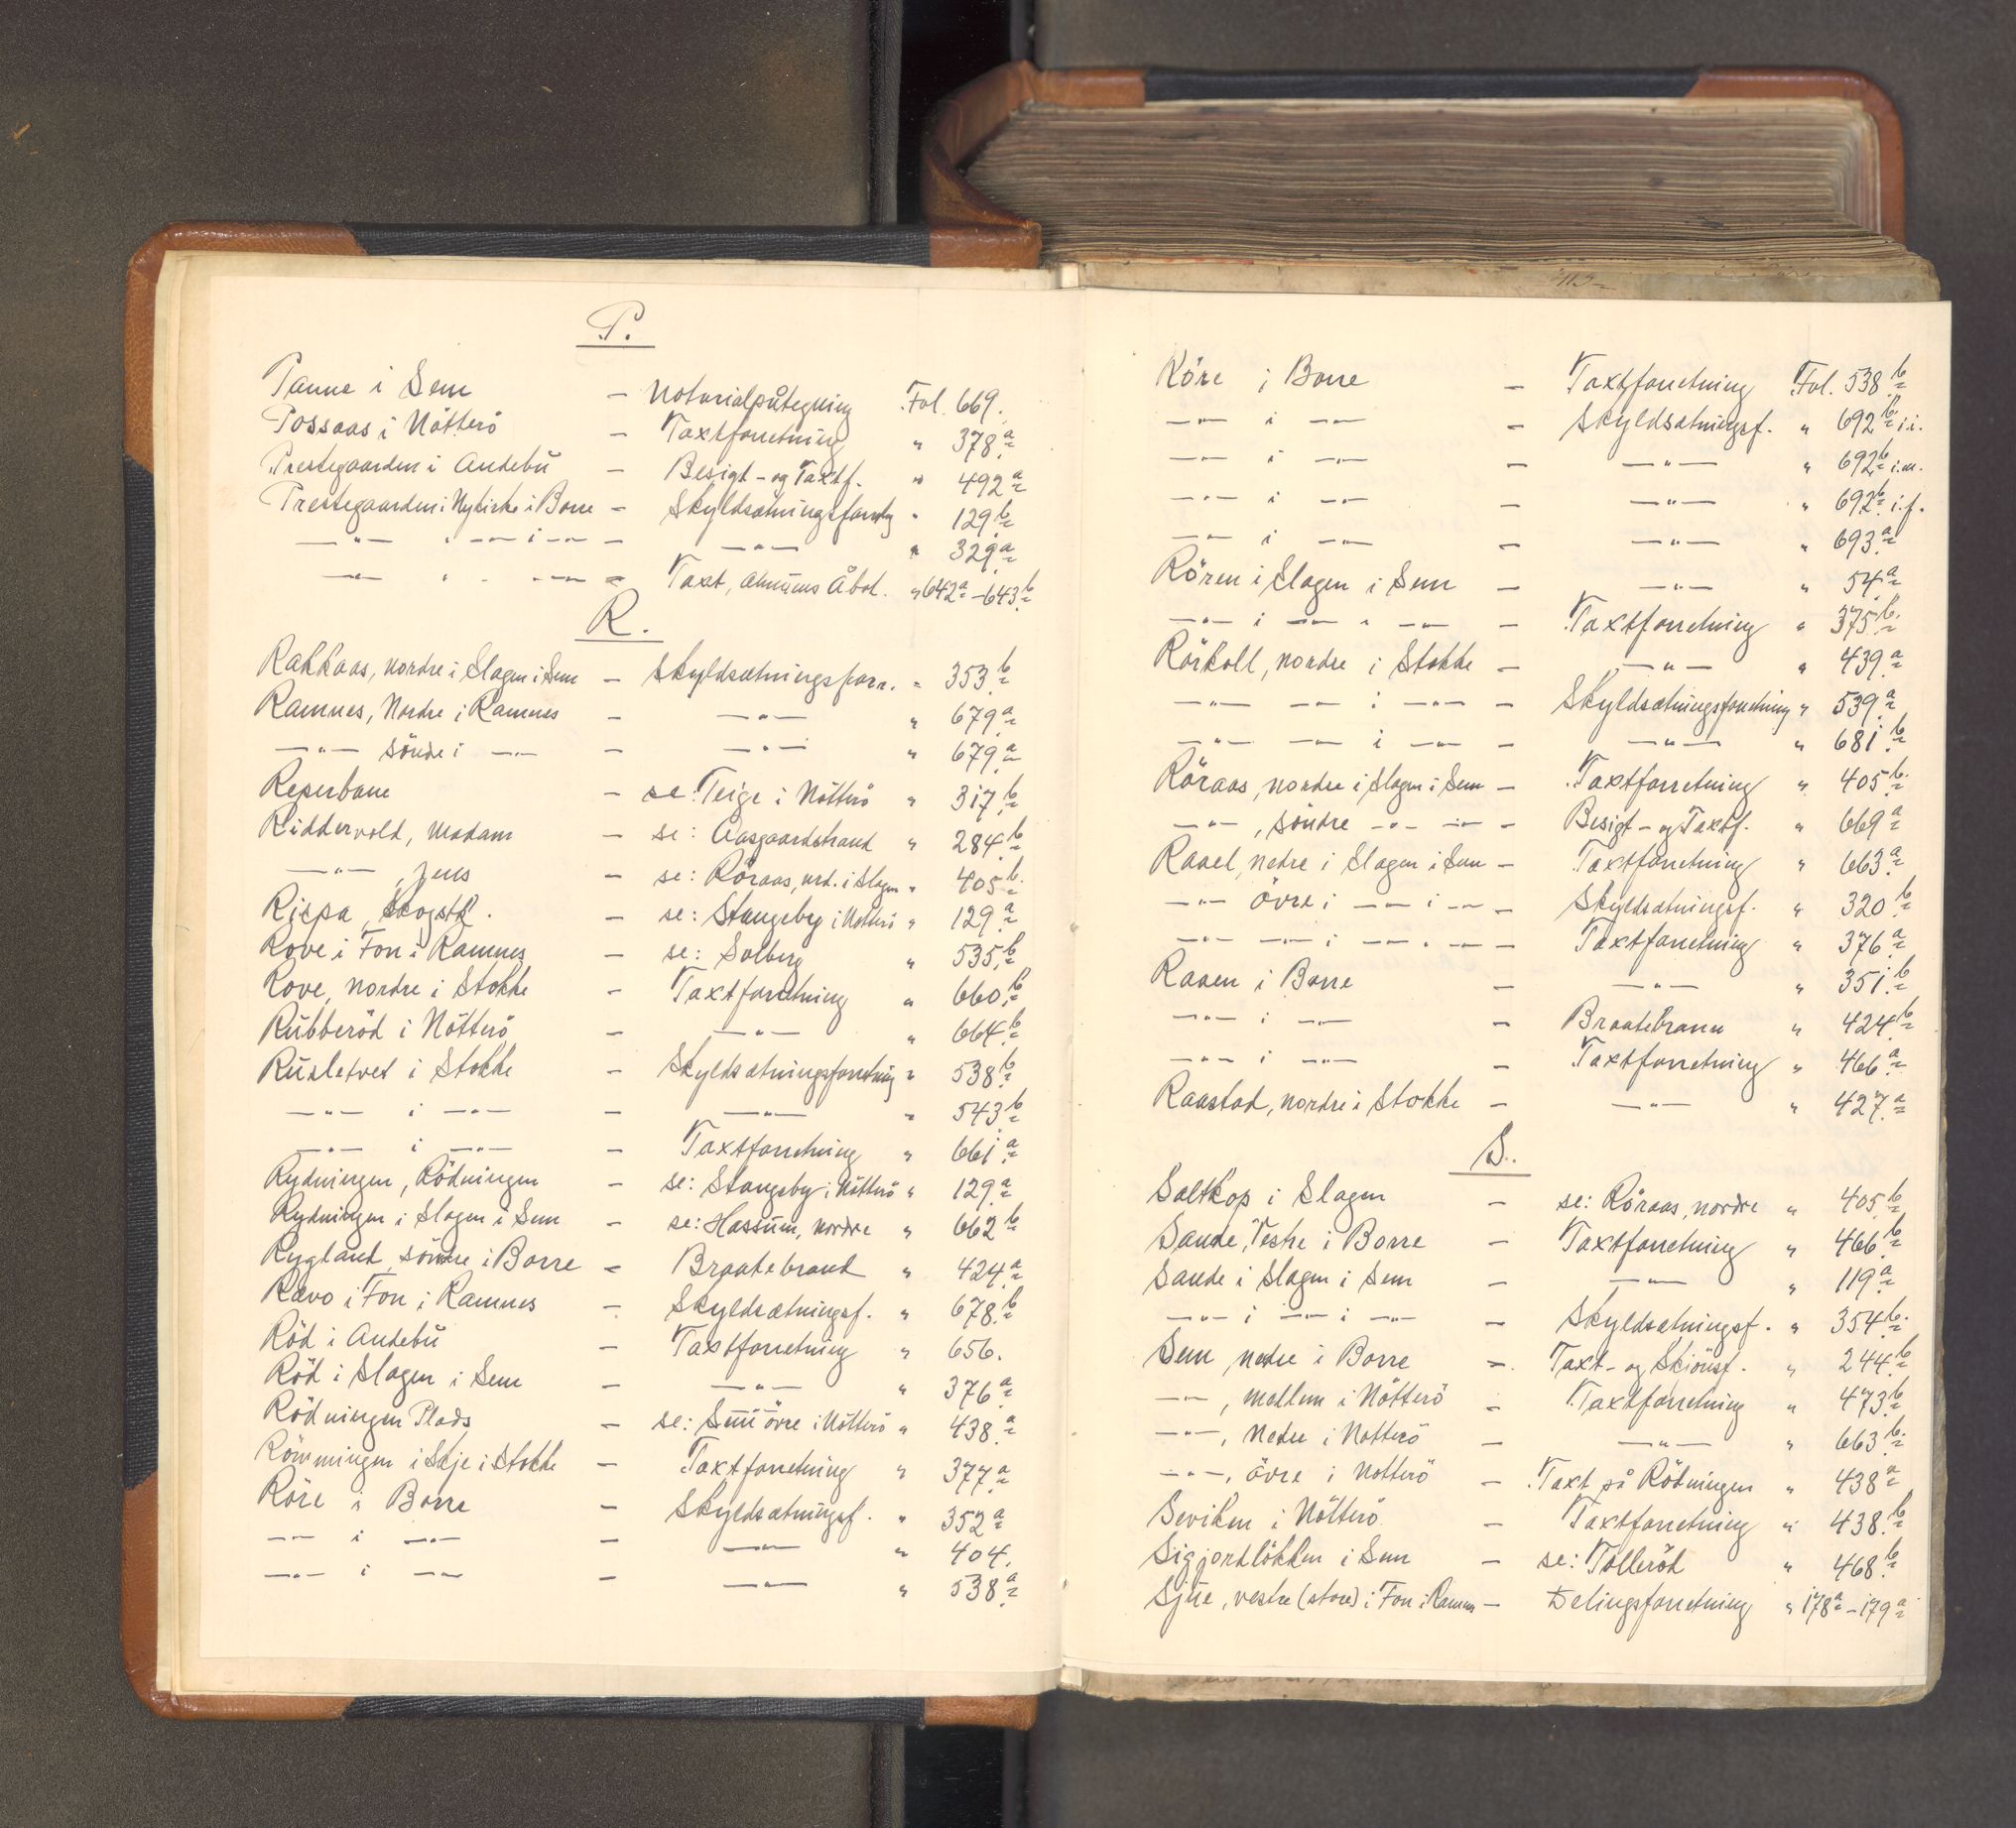 P.
Panne i Sem - Notarialpåtegning Fol. 669.
Possaas i Nötterö - Taxtforretning " 378a
Prestegaarden i Andebu - Besigt- og Taxtf. " 492a
Prestegaarden i Nykirke i Borre - Skyldsætningsforretg " 129b
—"— " —"— i —"— - —"— " 329a
—"— " - —"— - Taxt, Alnums Åbot. " 642a-643b
R.
Rakkaas, nordre i Slagen i Sem - Skyldsætningsforr. " 353b
Ramnes, Nordre i Ramnes - —"— " 679a
—"— söndre i —"— - —"— " 679a
Reperbane - se: Teige i Nötterö " 317b
Riddervold, Madam - se: Aasgaardstrand " 284b
—"—, Jens - se: Röraas, nrd. i Slagen " 405b
Rispa, Skogstk. - se: Stangeby i Nötterö " 129a
Rove i Fon i Ramnes - se: Solberg " 535b
Rove, nordre i Stokke - Taxtforretning " 660b
Rubberöd i Nötterö - —"— " 664b
Rusletvet i Stokke - Skyldsætningsforretning " 538b
—"— i —"— - —"— " 543b
—"— i —"— - Taxtforretning " 661a
Rydningen, Rödningen - se: Stangeby i Nötterö " 129a
Rydningen i Slagen i Sem - se: Hassum, nordre " 662b
Rygland, söndre i Borre - Braatebrand " 424a
Rævo i Fon i Ramnes - Skyldsætningsf. " 678b
Röd i Andebu - Taxtforretning " 656.
Röd i Slagen i Sem - —"— " 376a
Rödningen Plads - se: Sem övre i Nötterö " 438a
Römmingen i Skje i Stokke - Taxtforretning " 377a
Röre i Borre - Skyldsætningsf. " 352a
—"— i —"— - —"— " 404.
—"— i —"— - —"— " 538a
Röre i Borre - Taxtforretning Fol. 538b
—"— i —"— - Skyldsætningsf. " 692b i.i.
—"— i —"— - —"— " 692b i.m.
—"— i —"— - —"— " 692b i.f.
—"— i —"— - —"— " 693a
Rören i Slagen i Sem - —"— " 54a
—"— i —"— " —"— - Taxtforretning " 375b
Rörkoll, nordre i Stokke - —"— " 439a
—"— —"— i —"— - Skyldsætningsforretning " 539a
—"— —"— i —"— - —"— " 681b
Röraas, nordre i Slagen i Sem - Taxtforretning " 405b
—"—, söndre —"— —"— - Besigt- og Taxtf. " 669a
Raael, nedre i Slagen i Sem - Taxtforretning " 663a
—"— övre i —"— i —"— - Skyldsætningsf. " 320b
—"— —"— i —"— " —"— - Taxtforretning " 376a
Raaen i Borre - —"— " 351b
—"— i —"— - Braatebrann " 424b
—"— i —"— - Taxtforretning " 466a
Raastad, nordre i Stokke - —"— " 427a
S.
Saltkop i Slagen - se: Röraas, nordre " 405b
Sande, Vestre i Borre - Taxtforretning " 466b
Sande i Slagen i Sem - —"— " 119a
—"— i —"— i —"— - Skyldsætningsf. " 354b
Sem, nedre i Borre - Taxt- og Skjönsf. " 244b
—"—, mellem i Nötterö - Taxtforretning " 473b
—"—, Nedre i Nötterö - —"— " 663b
—"—, övre i Nötterö - Taxt på Rödningen " 438a
Seviken i Nötterö - Taxtforretning " 438b
Sigjordlökken i Sem - se: Tolleröd " 468b
Sjue, vestre (store) i Fon i Ramnes - Delingsforretning " 178a-179a